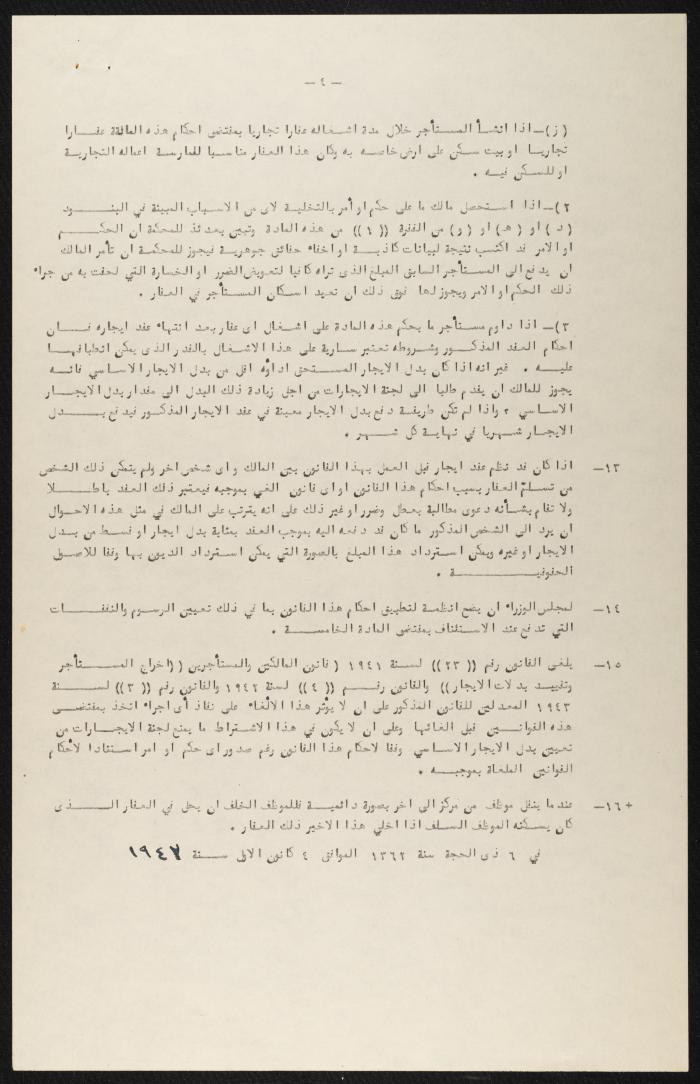 - ٤ -
(ز)- اذا انشأ المستأجر خلال مدة اشغاله عقارا تجاريا بمقتضى احكام هذه المادة عقارا
تجاريا او بيت سكن على ارض خاصه به وكان هذا العقار مناسبا لممارسة اعماله التجارية
او للسكن فيه .
٢)- اذا استحصل مالك ما على حكم او أمر بالتخلية لاى من الاسباب المبينة في البنود
(د) او (هـ) او (و) من الفقرة ((١)) من هذه المادة وتبين بعدئذ للمحكمة ان الحكم
او الامر قد اكتسب نتيجة لبيانات كاذبة او اخفاء حقائق جوهرية فيجوز للمحكمة ان تأمر المالك
ان يدفع الى المستأجر السابق المبلغ الذى تراه كافيا لتعويض الضرر او الخسارة التي لحقت به من جراء
ذلك الحكم او الامر ويجوز لها فوق ذلك ان تعيد اسكان المستأجر في العقار .
٣)- اذا داوم مستأجر ما بحكم هذه المادة على اشغال اى عقار بعد انتهاء عقد ايجاره فان
احكام العقد المذكور وشروطه تعتبر سارية على هذا الاشغال بالقدر الذى يمكن انطباقها
عليه . غير انه اذا كان بدل الايجار المستحق اداؤه اقل من بدل الايجار الاساسي فانه
يجوز للمالك ان يقدم طلبا الى لجنة الايجارات من اجل زيادة ذلك البدل الى مقدار بدل الايجار
الاساسي ، واذا لم تكن طريقة دفع بدل الايجار معينة في عقد الايجار المذكور فيدفع بدل
الايجار شهريا في نهاية كل شهر .
١٣- اذا كان قد نظم عقد ايجار قبل العمل بهذا القانون بين المالك واى شخص اخر ولم يتمكن ذلك الشخص
من تسلم العقار بسبب احكام هذا القانون او اى قانون الغي بموجبه فيعتبر ذلك العقد باطلا
ولا تقام بشأنه دعوى مطالبة بعطل وضرر او غير ذلك على انه يترتب على المالك في مثل هذه الاحوال
ان يرد الى الشخص المذكور ما كان قد دفعه اليه بموجب العقد بمثابة بدل ايجار او قسط من بدل
الايجار او غيره ويمكن استرداد هذا المبلغ بالصورة التي يمكن استرداد الديون بها وفقا للاصول
الحقوقية .
١٤- لمجلس الوزراء ان يضع انظمة لتطبيق احكام هذا القانون بما في ذلك تعيين الرسوم والنفقات
التي تدفع عند الاستئناف بمقتضى المادة الخامسة .
١٥- يلغى القانون رقم ((٢٣)) لسنة ١٩٤١ (قانون المالكين والمستأجرين ((اخراج المستأجر
وتقييد بدلات الايجار)) والقانون رقم ((٤)) لسنة ١٩٤٢ والقانون رقم ((٣)) لسنة
١٩٤٣ المعدلين للقانون المذكور على ان لا يؤثر هذا الالغاء على نفاذ أى اجراء اتخذ بمقتضى
هذه القوانين قبل الغائها وعلى ان لا يكون في هذا الاشتراط ما يمنع لجنة الايجارات من
تعيين بدل الايجار الاساسي وفقا لاحكام هذا القانون رغم صدور اى حكم او امر استنادا لاحكام
القوانين الملغاة بموجبه .
+١٦- عندما ينقل موظف من مركز الى اخر بصورة دائمية فللموظف الخلف ان يحل في العقار الذى
كان يسكنه الموظف السلف اذا اخلي هذا الاخير ذلك العقار .
في ٦ ذى الحجة سنة ١٣٦٢ الموافق ٤ كانون الاول سنة ١٩٤٧